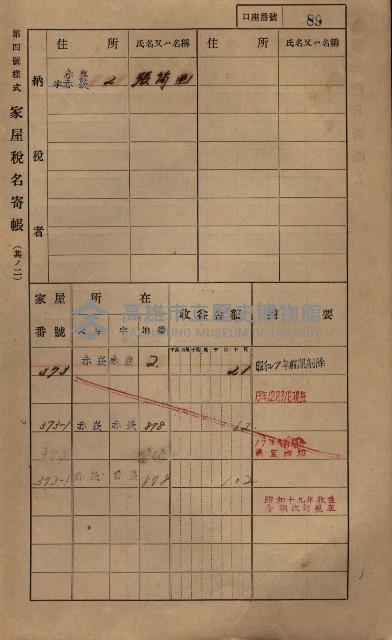 口座番號 89
第四號樣式 家屋稅名寄帳 (其ノ二)
納稅者
住所 氏名又ハ名稱 住所 氏名又ハ名稱
赤崁
字赤崁 2 張
家屋番號 所在 收益金額 摘要
大字 字 地番
373 赤崁 赤崁 2. 21 昭和17年 削除
13年12月31日現在
373-1 赤崁 赤崁 878 62
17年
373
373-1 赤崁 赤崁 878 102
昭和十九年收益
金額改訂現在
高雄市立歷史博物館
KAOHSIUNG MUSEUM OF HISTORY